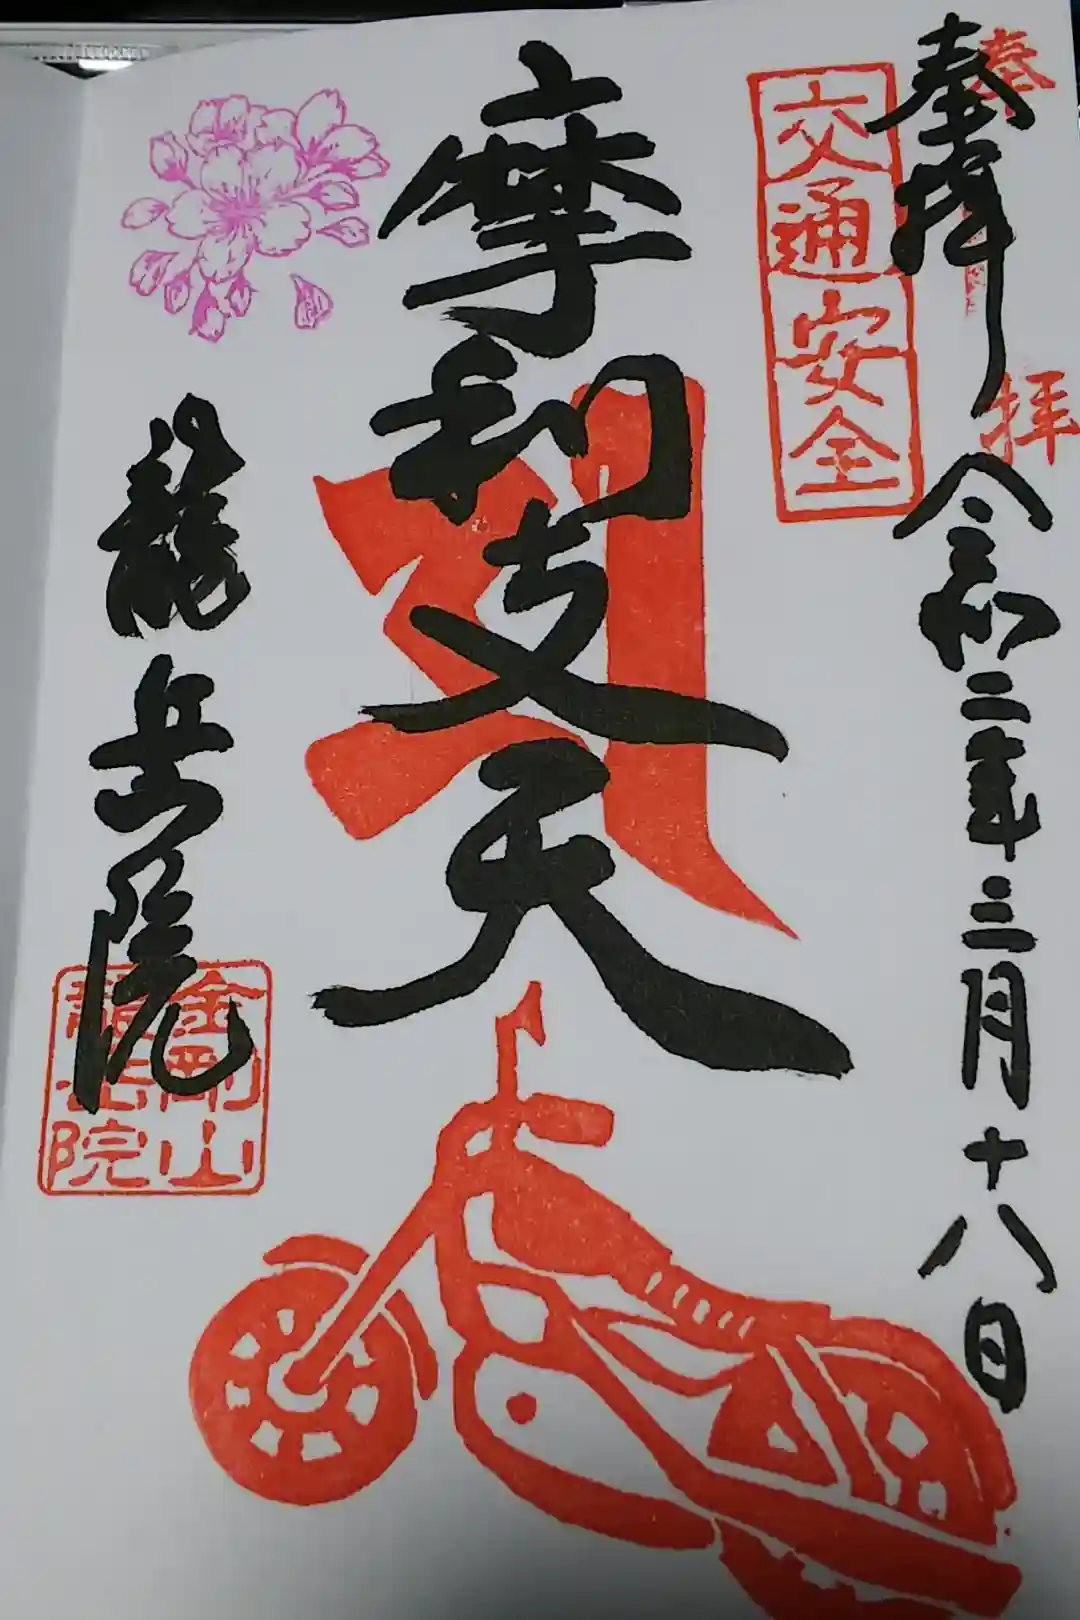 奉拝
奉拝 令和二年三月十八日
交通安全
摩利支天
龍岳院
金剛山
龍岳院